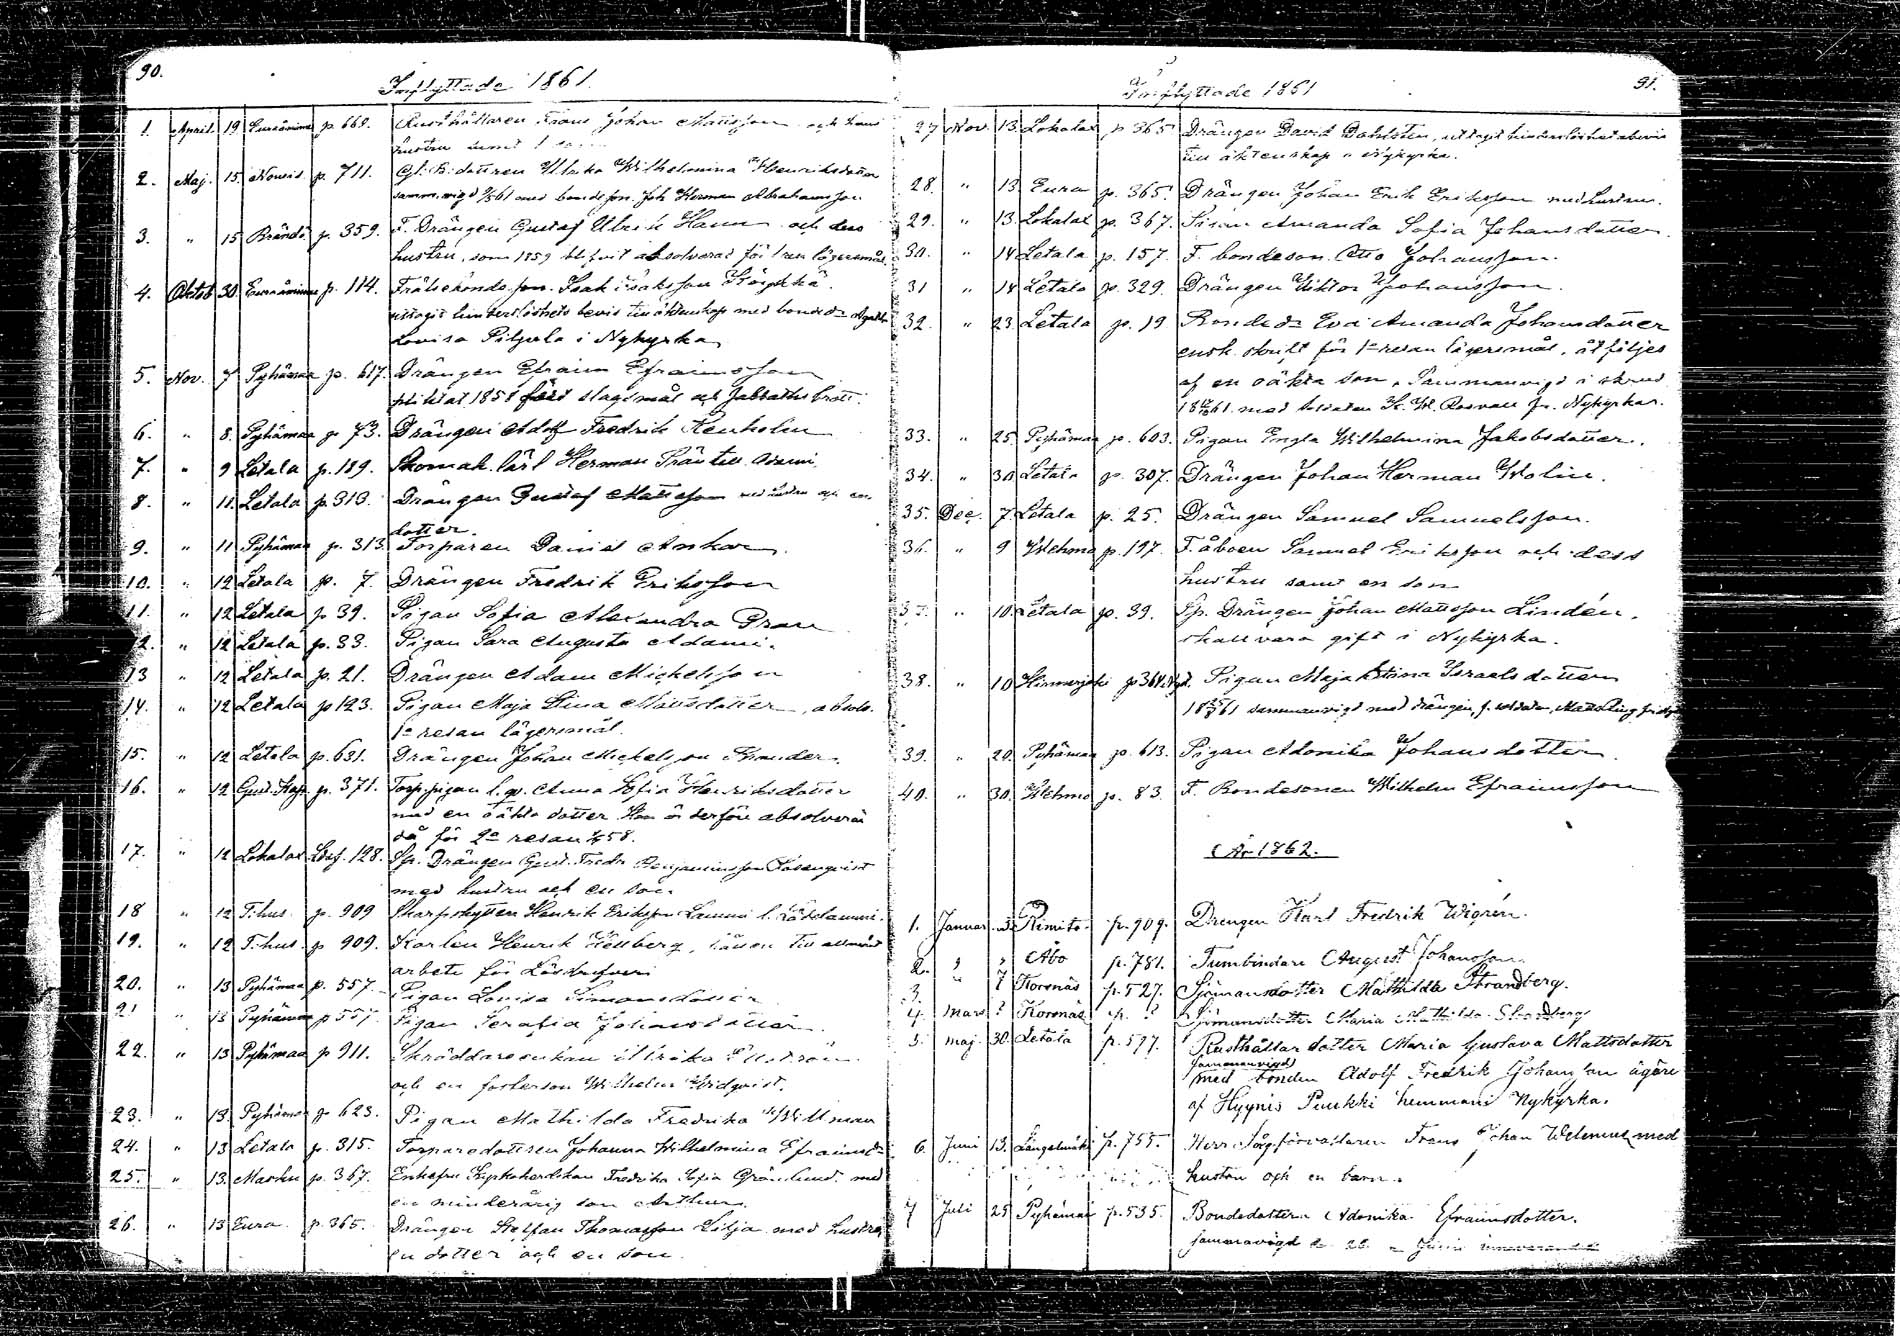 90.
Inflyttade 1861.
1. April 19 Euraåminne p. 669. Rusthållaren Frans Johan Mattsson och hans
hustru samt 1
2. Maj. 15. Nousis p. 711. Ulrika Wilhelmina Henriksdotter
med bondeson. Joh Herman Abrahamsson
3. " 15 Brändö p. 359. F. Drängen Gustaf Ulrik Hamn och dess
hustru, som 1859 blifvit absolverad för 1 resan lägersmål.
4. Oktob 30. Euraåminne p. 114. Frälsebonde son. Isak Isaksson
uttagit hinderslöshets bevis till äktenskap med bonded:r Agatha
Lovisa Pilpala i Nykyrka
5. Nov. 7 Pyhämaa p. 617. Drängen Efraim Efraimsson
pliktat 1858 för slagsmål och sabbathsbrott.
6. " 8. Pyhämaa p 73. Drängen Adolf Fredrik Renholm
7. " 9 Letala p. 189. Skomak. lärl Herman Frantill Adami
8. " 11. Letala p. 313. Drängen Gustaf Mattsson med hustru och en
dotter.
9. " 11 Pyhämaa p. 313. Torparen Daniel Ankar.
10. " 12 Letala p. 7. Drängen Fredrik Eriksson
11. " 12 Letala p 39. Pigan Sofia Alexandra Gran
2. " 12 Letala p. 33. Pigan Sara Augusta Adami.
13 " 12 Letala p. 21. Drängen Adam Michelsson
14. " 12 Letala p 123. Pigan Maja Stina Mattsdotter, absolv.
1:a resan lägersmål.
15. " 12 Letala p. 631. Drängen Johan Michelsson
16. " 12 Gust. Kap. p. 371. Anna Sofia Henriksdotter
med en oäkta dotter. Hon är derföre absolverad
för 2:a resan
17. " 12 Lokalax 128. Drängen Gust. Fredr Benjaminsson
med hustru och en son.
18 " 12 T:hus. p. 909 Skarpskytten Henrik Eriksson Lammi
19. " 12 T:hus p 909. Karlen Henrik Hellberg, till allmänt
arbete för Lösdrifveri
20. " 13 Pyhämaa p. 557. Pigan Lovisa Simonsdotter
21 " 13 Pyhämaa p 557 Pigan Serafia Johansdotter.
22. " 13 Pyhämaa p 911. Skräddareenkan Ulrika
och en fosterson Wilhelm Widqvist.
23. " 13. Pyhämaa p 623. Pigan Mathilda Fredrika Willman
24. " 13 Letala p. 315. Torparedottren Johanna Wilhelmina Efraimsd:r
25. " 13. Masku p. 367. Enkefru Fredrika Sofia Grönlund. med
en minderårig son Arthur.
26. " 13 Eura. p. 365. Drängen Staffan Thomasson Lilja med hustru,
en dotter och en son.
91.
Inflyttade 1861
27 Nov. 13. Lokalax p 365 Drängen David Dahlsten, uttagit hinderslöshetsbevis
till äktenskap i Nykyrka.
28. " 13 Eura p. 365. Drängen Johan Erik Eriksson med hustru.
29. " 13. Lokalax p. 367. Pigan Amanda Sofia Johansdotter.
30. " 14 Letala p. 157. F. bondeson. Otto Johansson.
31 " 14 Letala p. 329. Drängen Viktor Johansson.
32. " 23 Letala p. 19 Bonded:r Eva Amanda Johansdotter
ensk. skrift för 1:a resan lägersmål, åtföljes
af en oäkta son. Sammanvigd i
1861. med soldaten K. W. Rosvall fr. Nykyrka.
33. " 25. Pyhämaa p. 603. Pigan Engla Wilhelmina Jakobsdotter.
34. " 30 Letala p. 307. Drängen Johan Herman Wolin.
35. Dec. 7. Letala p. 25. Drängen Samuel Samuelsson.
36. " 9 Wehmo p. 197. F. åboen Samuel Eriksson och dess
hustru samt en son
" 10. Letala p. 39. Drängen Johan Mattsson Lindén.
skall vara gift i Nykyrka.
38. " 10 Hinnerjoki Pigan Maja Stina Israelsdotter
1861 sammanvigd med drängen, f. soldaten,
39. " 20. Pyhämaa p. 613. Pigan Adonika Johansdotter.
40. " 30. Wehmo p. 83. F. Bondesonen Wilhelm Efraimsson
År 1862.
1. Januar. Kimito. p. 909. Drengen Karl Fredrik Wigrén.
2. " " Åbo p. 781. Tunnbindare August Johansson.
3. " 7 Korsnäs p. 527. Sjömansdotter Mathilda Strandberg.
4. Mars ? Korsnäs p. ? Sjömansdotter Maria Mathilda Strandberg
5. Maj. 30. Letala p. 577. Rusthållar dotter Maria Gustava Mattsdotter
sammanvigd
med bonden Adolf Fredrik Johansson ägare
af Hyynis Puukki hemman i Nykyrka.
6. Juni 13. Längelmäki p. 755. Herr Sågförvaltaren Frans Johan Welenius med
hustru och en barn.
7 Juli 25 Pyhämaa p. 535. Bondedottern Adonika Efraimsdotter.
sammanvigd d. 26. Juni innevarande